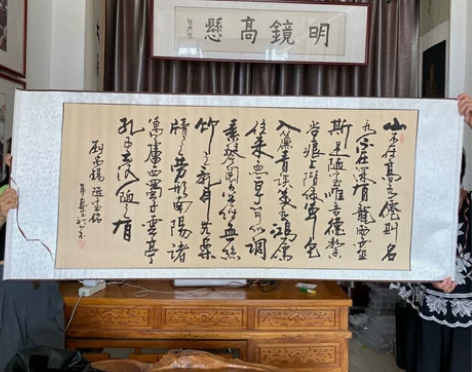 明鏡高懸
山不在高有僊則名
水不在深有龍則靈
斯是陋室惟吾德馨
苔痕上階綠草色
入簾青談笑有鴻儒
往來無白丁可以調
素琴閱金經無絲
竹之亂耳無案
牘之勞形南陽諸
葛廬西蜀子雲亭
孔子云何陋有
劉禹錫陋室銘